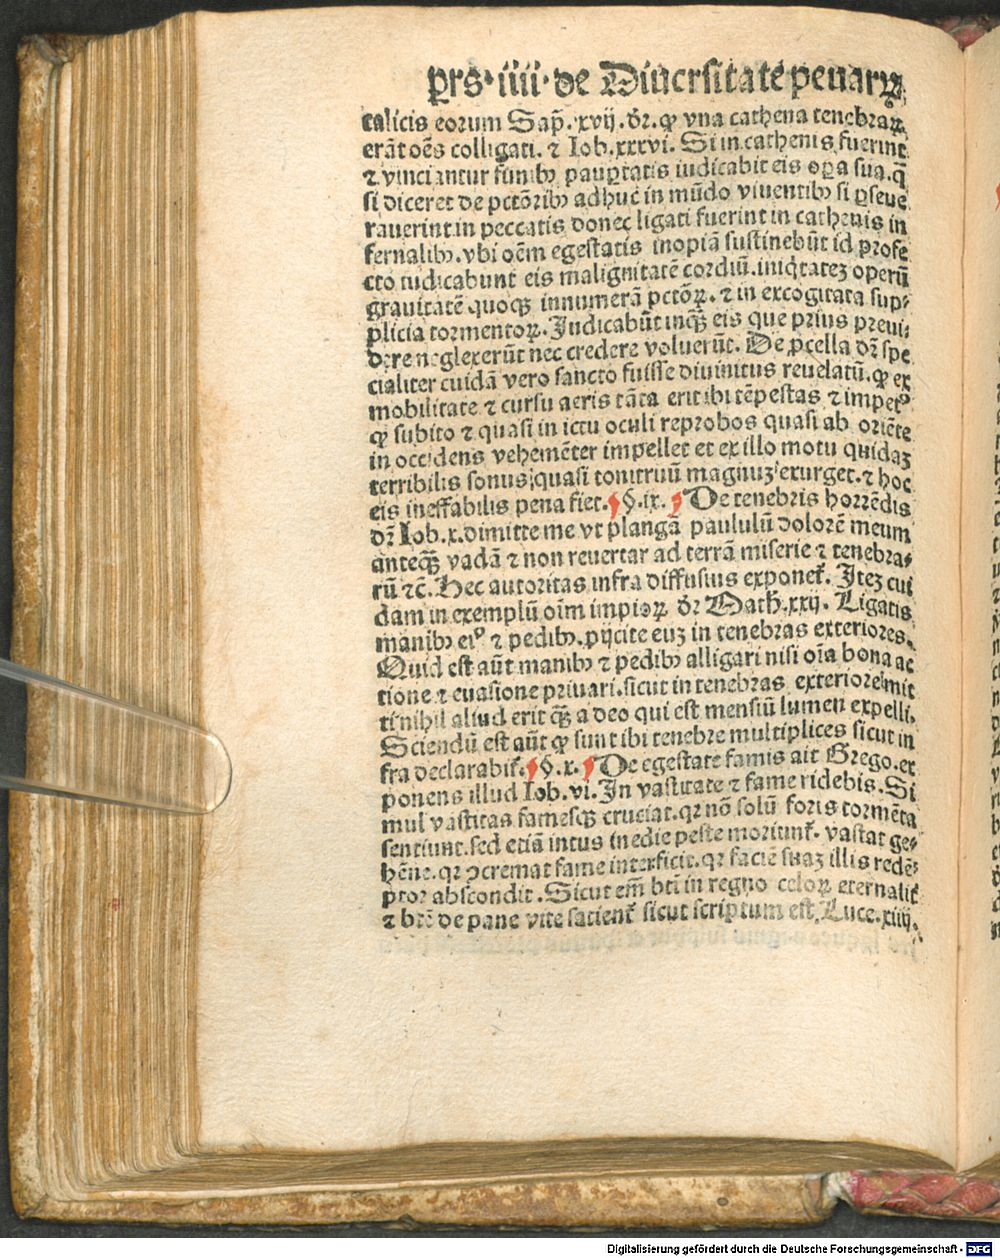 ꝑrs·iiii·de Diuersitate penaꝝ
talicis eorum Sap̄.xvij.dr̄.ꝙ vna cathena tenebraꝝ
erāt oēs colligati.⁊ Iob.xxxvi. Si in cathenis fuerint
⁊ vinciantur funibꝫ pauꝑtatis iudicabit eis oꝑa sua.q̄
si diceret de pctōribꝫ adhuc in mūdo viuentibꝫ si ꝑseue
rauerint in peccatis donec ligati fuerint in cathenis in
fernalibꝫ.vbi oēm egestatis inopiā sustinebūt id profe
cto iudicabunt eis malignitatē cordiū.iniq̇tateꝫ operū
grauitatē quoqꝫ innumerā pctōꝝ.⁊ in excogitata sup⸗
plicia tormentoꝝ. Iudicabūt inqꝫ eis que prius preui⸗
dere neglexerūt nec credere voluerūt. De ꝓcella dr̄ spe
cialiter cuidā vero sancto fuisse diuinitus reuelatū.ꝙ ex
mobilitate ⁊ cursu aeris tāta erit ibi tēpestas ⁊ impetꝰ
ꝙ subito ⁊ quasi in ictu oculi reprobos quasi ab oriēte
in occidens vehemēter impellet et ex illo motu quidaꝫ
terribilis sonus quasi tonitruū magnuꝫ exurget.⁊ hoc
eis ineffabilis pena fiet. ¶ §.ix. ¶ De tenebris horrēdis
dr̄ Iob.x.dimitte me vt plangā paululū dolorē meum
anteqꝫ vadā ⁊ non reuertar ad terrā miserie ⁊ tenebra⸗
rū ⁊c̄. Hec autoritas infra diffusius exponet᷑. Iteꝫ cui
dam in exemplū oīm impioꝝ dr̄ Math̄.xxij. Ligatis
manibꝫ eiꝰ ⁊ pedibꝫ.ꝓijcite euꝫ in tenebras exteriores.
Quid est aūt manibꝫ ⁊ pedibꝫ alligari nisi oīa bona ac
tione ⁊ euasione priuari.sicut in tenebras exteriores mit
ti nihil aliud erit qꝫ a deo qui est mensiū lumen expelli.
Sciendū est aūt ꝙ sunt ibi tenebre multiplices sicut in
fra declarabit᷑. ¶ §.x. ¶ De egestate famis ait Grego.ex
ponens illud Iob.vi. In vastitate ⁊ fame ridebis. Si
mul vastitas famesqꝫ cruciat.qr nō solū foris tormēta
sentiunt.sed etiā intus inedie peste moriunt᷑. vastat ge⸗
hēne.qr ↄcremat fame interficit.qr faciē suaꝫ illis redē⸗
ptor abscondit. Sicut em̄ bt̄i in regno celoꝝ eternalit᷑
⁊ btē de pane vite satient᷑ sicut scriptum est. Luce.xiiij.
Digitalisierung gefördert durch die Deutsche Forschungsgemeinschaft - DFG